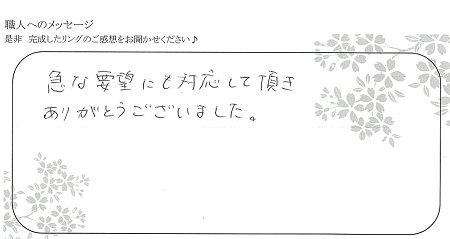 職人へのメッセージ
是非 完成したリングのご感想をお聞かせください♪
急な要望にも対応して頂き
ありがとうございました。